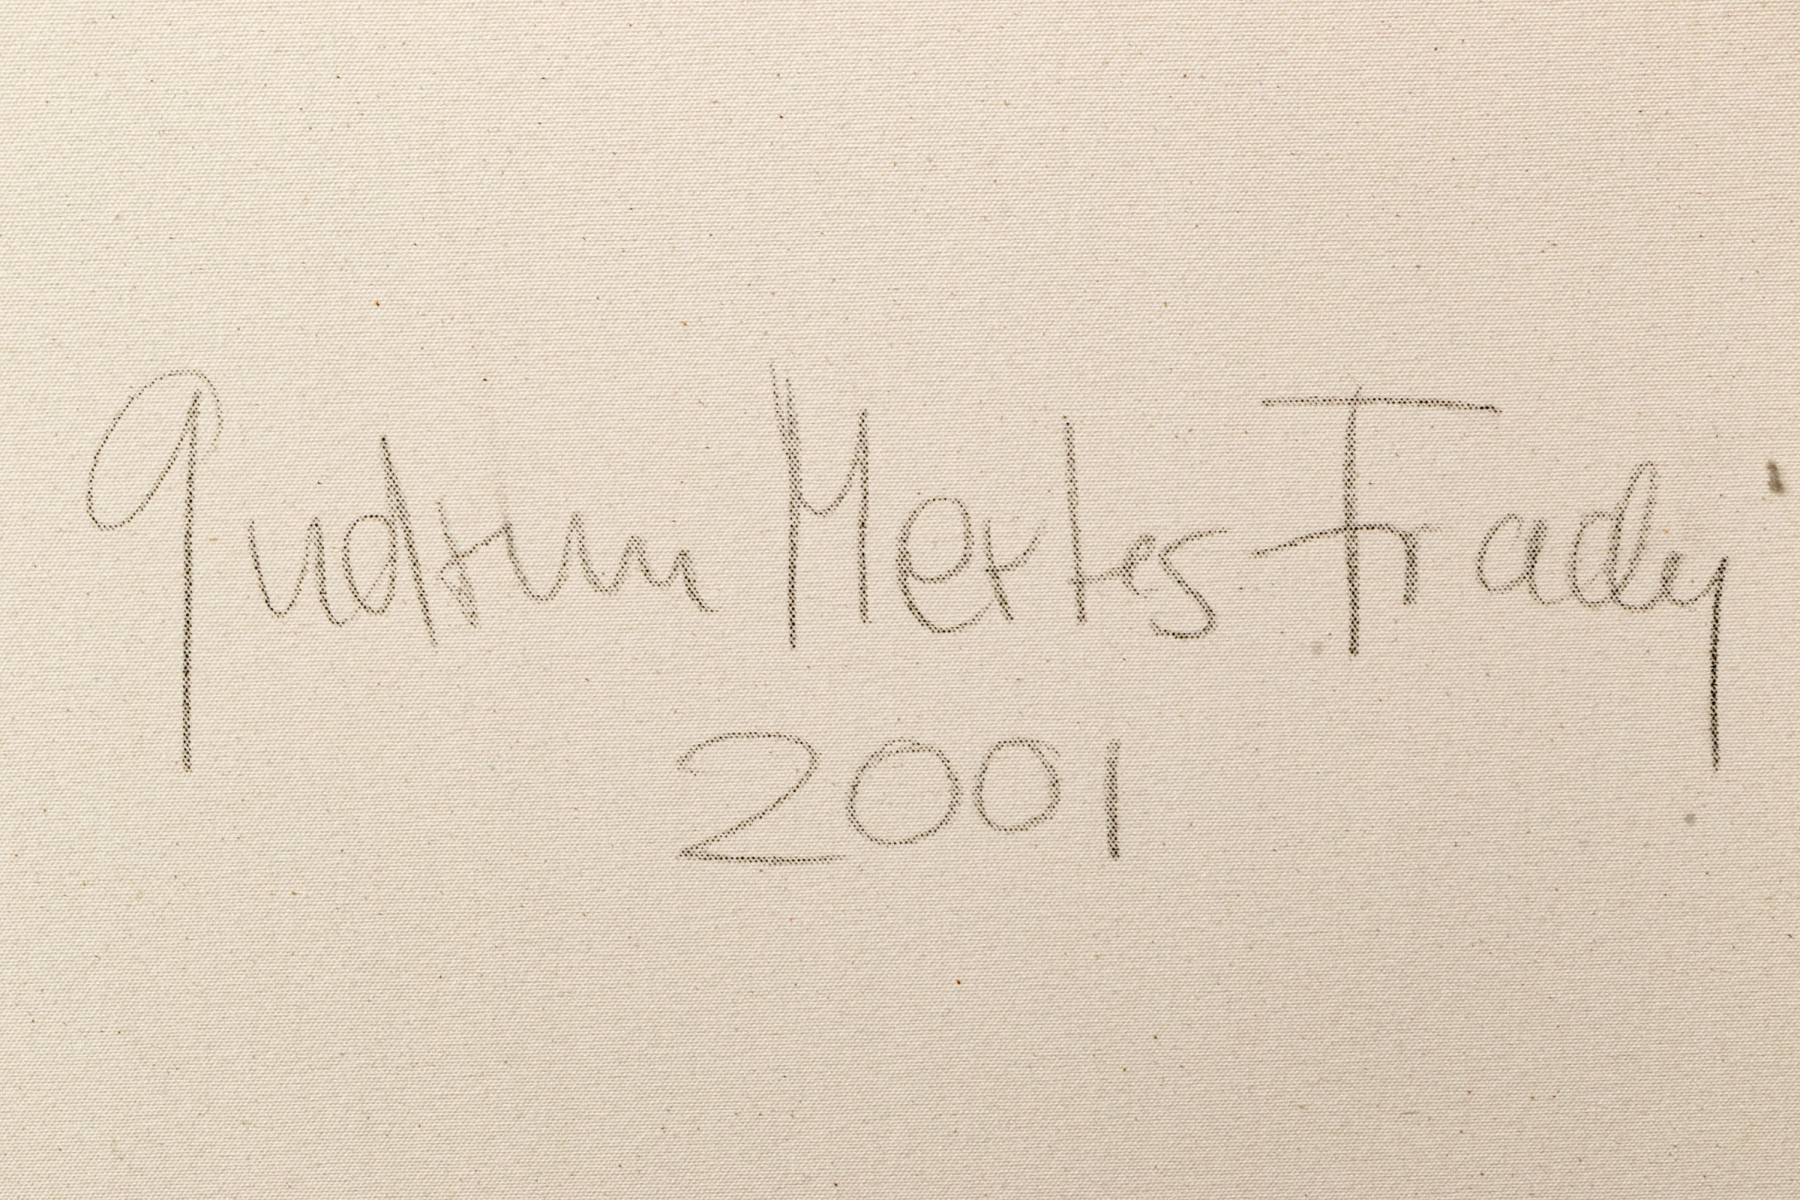 Gudrun Mertes-Frady
2001